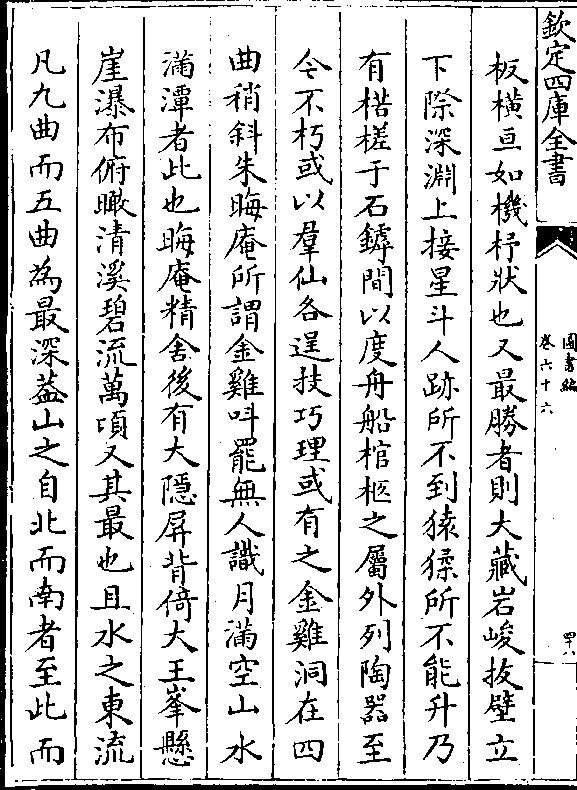 欽定四庫全書
圖書編
卷六十六
四八
板橫亘如機杼狀也又最勝者則大藏岩峻拔壁立
下際深淵上接星斗人跡所不到猿猱所不能升乃
有楛槎于石罅間以度舟船棺柩之屬外列陶器至
今不朽或以羣仙各逞技巧理或有之金雞洞在四
曲稍斜朱晦庵所謂金雞呌罷無人識月滿空山水
滿潭者此也晦庵精舍後有大隱屏背倚大王峯懸
崖瀑布俯瞰清溪碧流萬頃又其最也且水之東流
凡九曲而五曲為最深葢山之自北而南者至此而